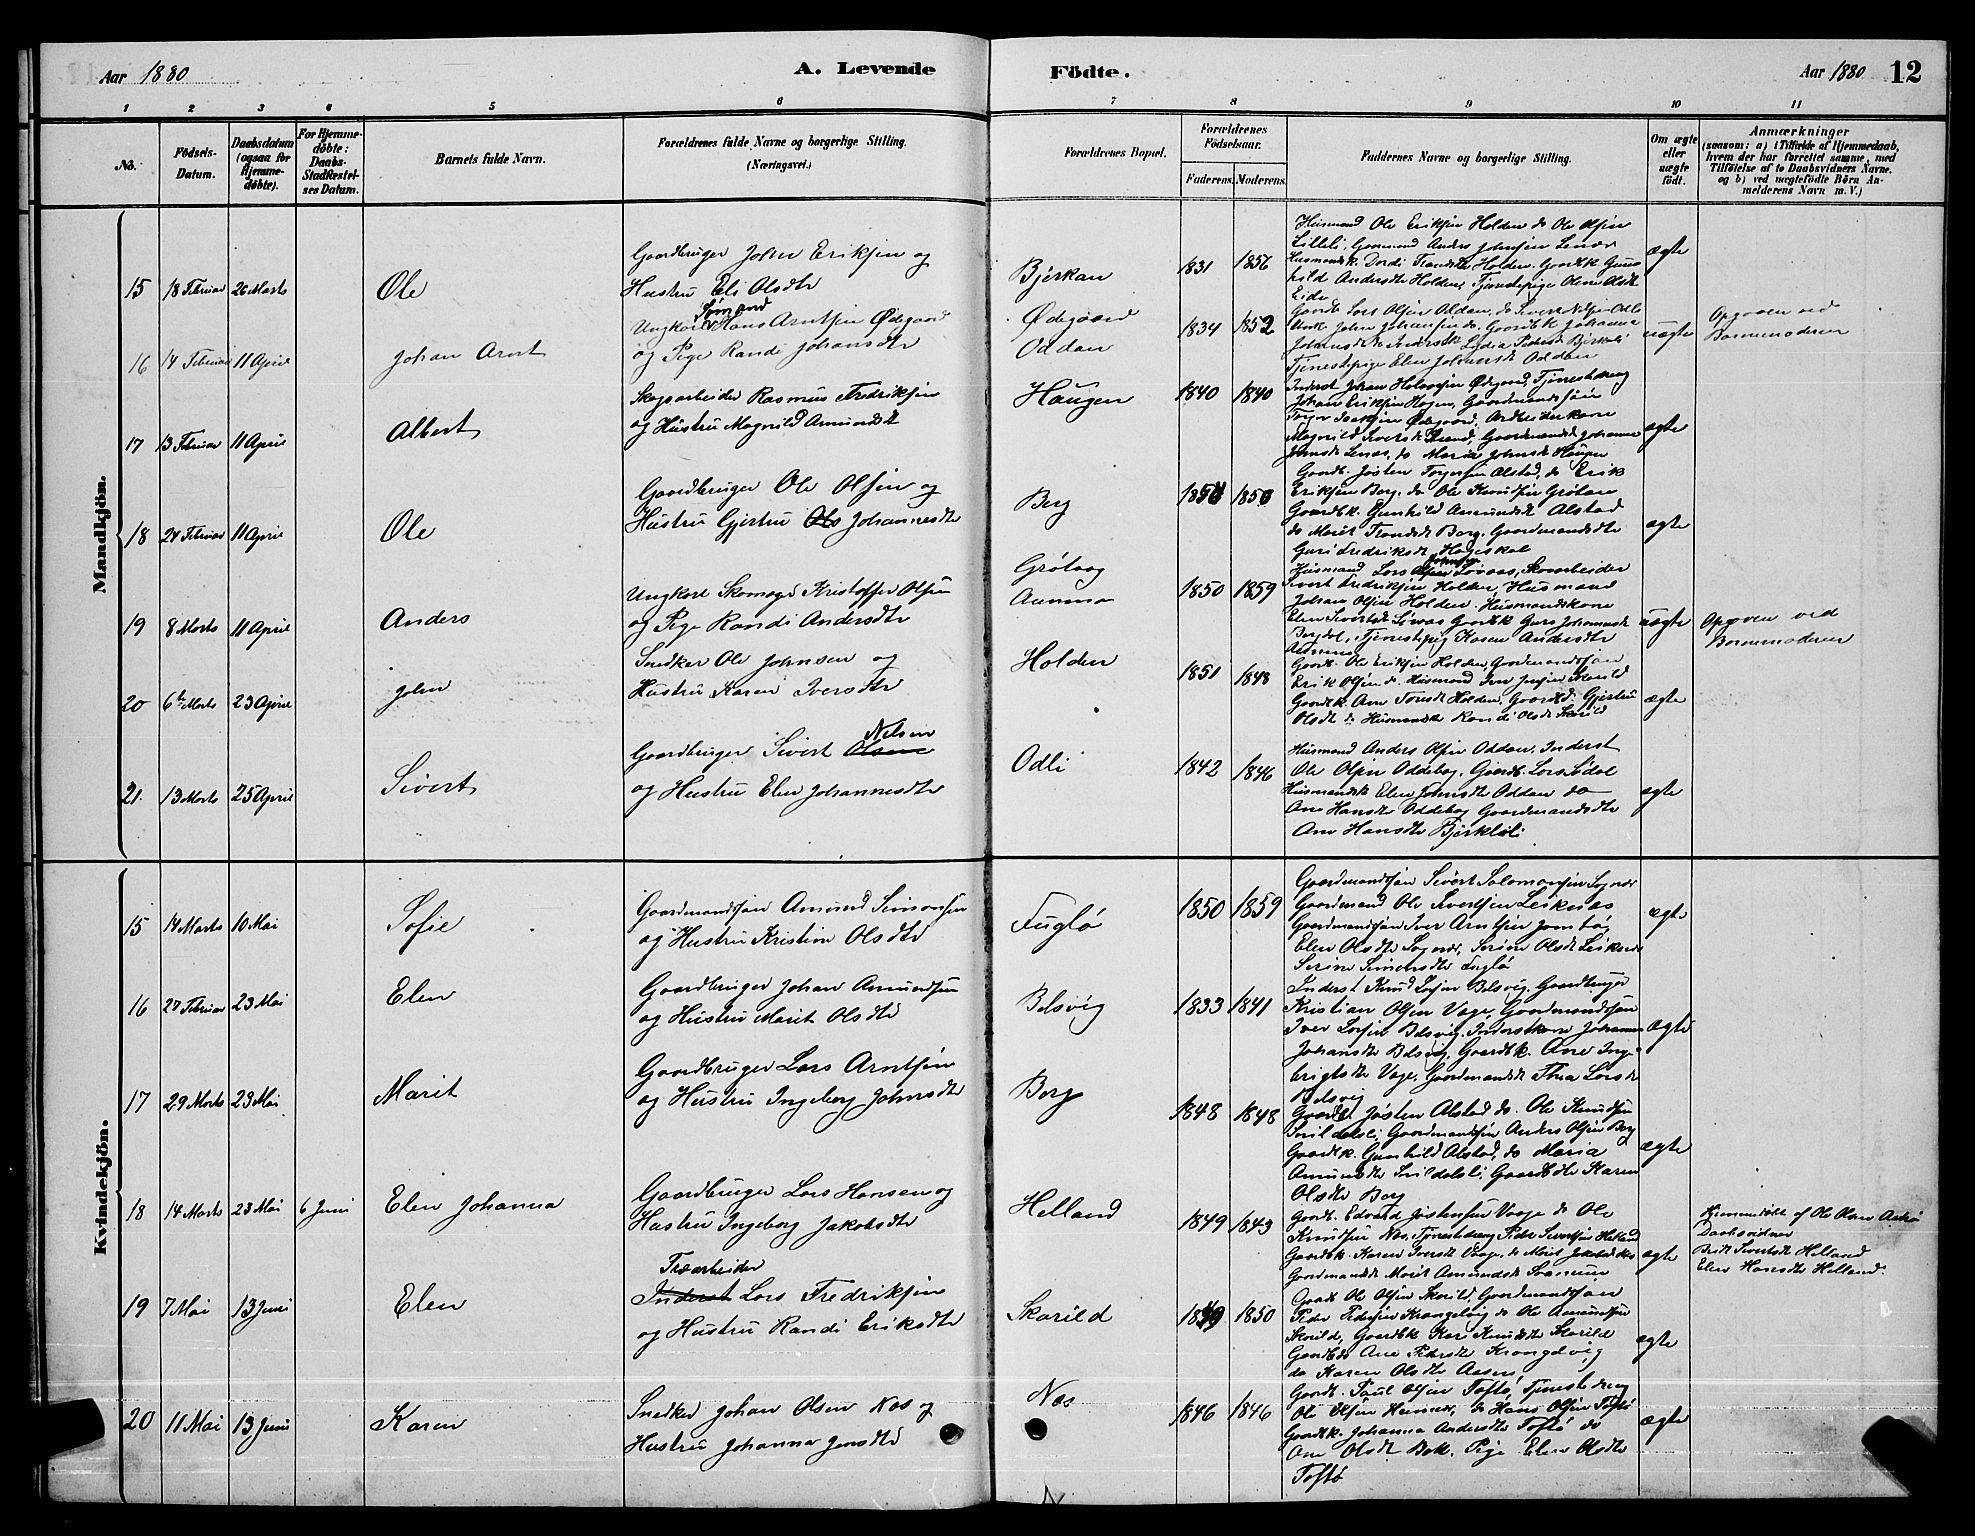 Aar 1880
A. Levende
Födte.
Aar 1880
12
1 2 3 4 5 6 7 8 9 10 11
No.
Födsels-Datum.
Daabsdatum (ogsaa for Hjemme-döbte).
For Hjemme-döbte: Daabs-Stadfæstel-ses Datum.
Barnets fulde Navn.
Forældrenes fulde Navne og borgerlige Stilling. (Næringsvei.)
Forældrenes Bopæl.
Forældrenes Födselsaar.
Faderens. Moderens.
Faddernes Navne og borgerlige Stilling.
Om ægte eller uægte födt.
Anmærkninger
(saasom: a) i Tilfælde af Hjemmedaab, hvem der har forrettet samme, med Tilföielse af to Daabsvidners Navne, og b) ved uægtefödte Börn An-melderens Navn m. V.)
Mandkjön.
15 18 Februar 26 Marts Ole
Gaardbruger John Eriksen og
Hustru Eli Olsdtr
Bjerkan
1831 1856
Husmand Ole Eriksen Holden do Ole Olsen
Lilleli, Gaarmand Anders Johnsen Lenæs
Husmandsk. Dordi Trondsdtr Holden. Gaardk. Gun-
hild Andersdtr Holden, Tjenestepige Olene Olsdt
Eide
ægte
16 14 Februar 11 April Johan Arnt
Ungkarl Sømand Hans Arntsen Ødegaard
og Pige Randi Johansdtr
Ødegaard
Oddan
1834 1852
Tjenestepige Elen Johnsdt Oddan
uægte
Opgiven ved
Barnemoderen
17 13 Februar 11 April Albert
Skogsarbeider Rasmus Fredriksen
og Hustru Magnild Amundsdt
Haugen
1840 1840
Inderst Johan Ødegaard, Tjenestedreng
Johan Eriksen Hagen, Gaardmandssøn
Magnild Sivertsdt Strand, Gaardmandsdt Johanna
Johnsdt Lenæs, do Maria Johnsdt Haugen
ægte
18 24 Februar 11 April Ole
Gaardbruger Ole Olsen og
Hustru Gjertru Ols Johannesdtr
Berg
1850
Gaardb. Josten Torgersen Alstad, do Erik
Eriksen Berg. do Ole Knudsen Grötan
Gaardk. Gunhild Amundsdt Alstad
do Marit Trondsdt Berg. Gaardmandsdtr
Guri Fredriksdt Hageskal
ægte
19 8 Marts 11 April Anders
Ungkarl Skomager Kristoffer Olsen
og Pige Randi Andersdtr
Grötaag
Aunmo
1850 1859
Husmand Lars Johnsen Løvaas, Skovarbeider
Sivert Fredriksen Holden, Husmand
Johan Olsen Holden. Husmandskone
Elen Sivertsdt Løvaas Gaardk Guru Johannesdt
Bergdal, Tjenestepig Karen Andersdtr
Aunmo
uægte
Opgiven ved
Barnemoderen
20 6te Marts 23 April John
Snedker Ole Johnsen og
Hustru Karen Iversdtr
Holden
1851 1848
Gaardb. Ole Eriksen Holden, Gaardmandssøn
Erik Olsen do. Husmand Jens Jensen Skorild
Gaardk. Ane Tomsdt Holden, Gaardmd. Gjertru
Olsdt do Husmandsdtr Randi Olsdt Skorild
ægte
21. 13 Marts 25 April Sivert
Gaardbruger Sivert Olsen Nelsen
og Hustru Elen Johannesdtr
Odli
1842 1846
Husmand Anders Olsen Oddan, Inderst
Ole Olsen Oddebog, Gaardb. Lars Lødal
Husmandsk Elen Johnsdtr Oddan do
Ane Hansdtr Oddebog Gaardmandsdtr
Ane Hansdtr Bjørkløli
ægte
Kvindekjön.
15 14 Marts 10 Mai Sofie
Gaardmandssøn Amund Simonsen
og Hustru Kristine Olsdtr
Fuglø
1850 1859
Gaardmandssøn Sivert Solomonsen Sognær
Gaardmand Ole Sivertsen Leiknæs
Gaardmandssøn Iver Arntsen Jamtøy
Elen Olsdtr Sognær, Serine Olsdt Leiknæs
Serine Simonsdtr Fuglø
ægte
16 27 Februar 23 Mai Elen
Gaardbruger Johan Amundsen
og Hustru Marit Olsdtr
Belsvig
1833 1841
Inderst Knud Larsen Belsvig, Gaardbruger
Kristian Olsen Vage, Gaardmandssøn
Iver Larsen Belsvig, Inderstkone Johanna
Johansdtr Belsvig, Gaardbk. Ane Inge-
brigtsdtr Vage, Gaardmandsdt Thea Larsdt
Belsvig
ægte
17 29 Marts 23 Mai Marit
Gaardbruger Lars Arntsen
og Hustru Ingeborg Johnsdtr
Berg
1848 1848
Gaardb. Josten Alstad do. Ole Knudsen
Snildalsli, Gaardmandssøn Anders Olsen Berg
Gaardk. Gunhild Alstad, do Maria
Amundsdtr Snildalsli Gaardbdtr Karen
Olsdtr Berg
ægte
18 14 Marts 23 Mai 6 Juni Elen Johanna
Gaardbruger Lars Hansen og
Hustru Ingeborg Jakobsdtr
Helland
1849 1843
Gaardb. Edvard Jostensen Vaage do Ole
Knudsen Næs, Tjenestdreng Peder Sivertsen Helland
Gaardbk. Karen Iversdt Vaage, do Marit
Gaardmandsdt Marit Amundsdt
ægte
Hjemmedöbt af Ole Olsen
Daabsvidner
Brit Sivertsdt Helland
Elen Hansdtr Helland.
19 7 Mai 13 Juni Elen
Træarbeider
Inderst Lars Fredriksen
og Hustru Randi Eriksdtr
Skorild
1849 1850
Gaardb Ole Olsen Skorild, Gaardmandssøn
Peder Pedersen Krangelvig do Ole Amundsen
Skorild, Gaardbk Kari Knudsdtr Skorild
Gaardbdtr Ane Pedersdtr Krangelvig
do Karen Olsdtr Aasen
ægte
20 11 Mai 13 Juni Karen
Snedker Johan Olsen Næs og
Hustru Johanna Jensdtr
Næs
1846 1846
Gaardb. Paul Olsen Toftø, Tjenestedreng
Ole Olsen, do Hans Olsen Toftø
Gaardbk. Johanna Andersdtr Toftø do
Ane Olsdt Bek, Pige Elen Olsdtr
Toftø
ægte